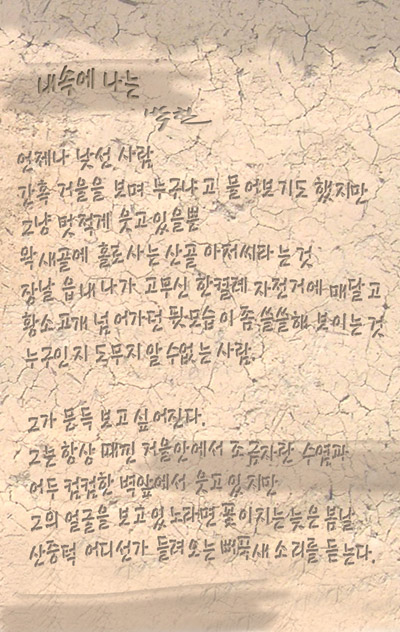 내속에 나는
박한
언제나 낯선 사람
간혹 거울을 보며 누구냐고 물어보기도 했지만
그냥 멋적게 웃고있을뿐
왁새골에 홀로사는 산골 아저씨라는 것
장날 읍내 나가 고무신 한켤레 자전거에 매달고
황소고개 넘어가던 뒷모습이 좀 쓸쓸해 보이는 것
누구인지 도무지 알 수 없는 사람.
그가 문득 보고 싶어진다.
그는 항상 때낀 거울안에서 조금자란 수염과
어두컴컴한 벽앞에서 웃고 있지만
그의 얼굴을 보고 있노라면 꽃이지는 늦은 봄날
산중턱 어디선가 들려오는 뻐꾹새 소리를 듣는다.